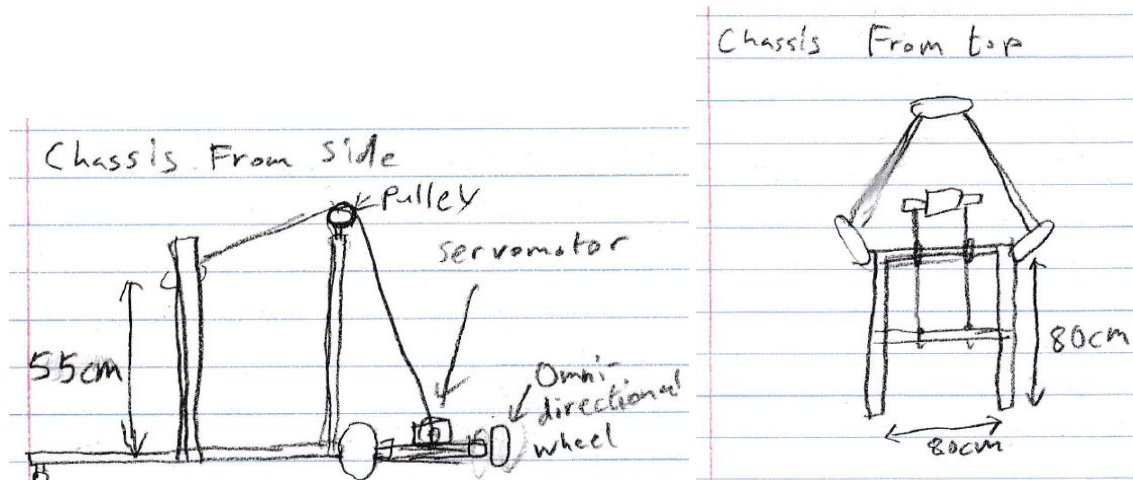 Chassis From Side
Pulley
servomotor
55cm
Omni-
directional
wheel
Chassis From top
80cm
80cm